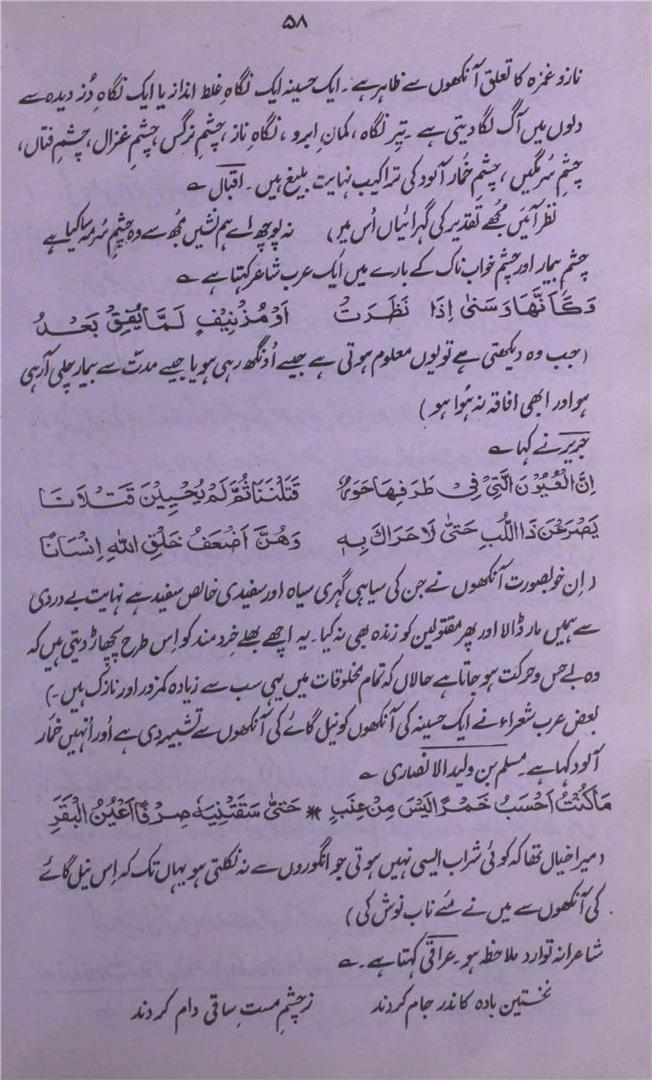 ۵۸
ناز و غمزہ کا تعلق آنکھوں سے ظاہر ہے ۔ ایک حسینہ ایک نگاہِ غلط انداز یا ایک نگاہِ دُزدیدہ سے
دلوں میں آگ لگا دیتی ہے ۔ تیرِ نگاہ ، کمانِ ابرو ، نگاہِ ناز ، چشمِ نرگس، چشمِ غزال، چشمِ فتاں،
چشمِ سُرمگیں ، چشمِ خُمار آلود کی تراکیب نہایت بلیغ ہیں ۔ اقبال ؎
نظر آئیں مجھے تقدیر کی گہرائیاں اُس میں ) نہ پوچھ اے ہم نشیں مجھ سے وہ چشمِ سُرمہ سا کیا ہے
چشمِ بیمار اور چشمِ خواب ناک کے بارے میں ایک عرب شاعر کہتا ہے ؎
وَکَاَنَّھَا وَسَنیٰ اِذَا نَظَرَتْ اَوْ مُدْنِیْفٍ لَمَّا یُفِقْ بَعْدُ
( جب وہ دیکھتی ہے تو یوں معلوم ہوتی ہے جیسے اُونگھ رہی ہو یا جیسے مدت سے بیمار چلی آ رہی
ہو اور ابھی افاقہ نہ ہُوا ہو )
جریر نے کہا ؎
اِنَّ الْعُیُوْنَ الَّتِیْ فِیْ طَرَفِھَا حَوَرٌ قَتَلْنَنَا ثُمَّ لَمْ یُحْیِیْنَ قَتْلَانَا
یَصْرَعْنَ ذَا اللُّبِ حَتّیٰ لَا حَرَاكَ بِهٖ وَھُنَّ اَضْعَفُ خَلْقِ اللهِ اِنْسَانًا
( اِن خوبصورت آنکھوں نے جن کی سیاہی گہری سیاہ اور سفیدی خالص سفید ہے نہایت بے دردی
سے ہمیں مار ڈالا اور پھر مقتولین کو زندہ بھی نہ کیا ۔ یہ اچھے بھلے خِرد مند کو اِس طرح پچھاڑ دیتی ہیں کہ
وہ بے حِس و حرکت ہو جاتا ہے حالاں کہ تمام مخلوقات میں یہی سب سے زیادہ کمزور اور نازک ہیں ۔ )
بعض عرب شعراء نے ایک حسینہ کی آنکھوں کو نیل گائے کی آنکھوں سے تشبیہ دی ہے اور اُنہیں خُمار
آلود کہا ہے ۔ مسلم بن ولید الانصاری ؎
مَا کُنْتُ اَحْسَبُ خَمْرًا لَیْسَ مِنْ عِنَبٍ * حَتّیٰ سَقَتْنِیْهٖ صِرْفًا اَعْیُنُ الْبَقَرِ
( میرا خیال تھا کہ کوئی شراب ایسی نہیں ہوتی جو انگوروں سے نہ نکلتی ہو یہاں تک کہ اِس نیل گائے
کی آنکھوں سے میں نے مئے ناب نوش کی )
شاعرانہ توارد ملاحظہ ہو ۔ عراقی کہتا ہے ۔ ؎
نخستین بادہ کاندر جام کردند زچشمِ مستِ ساقی دام کردند